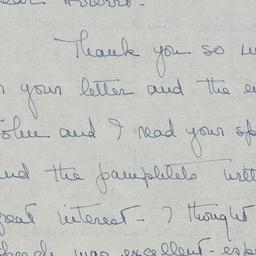 Thank you so
your letter and the
and I read your
and the pamphlets
great interest - I thought
was excellent -